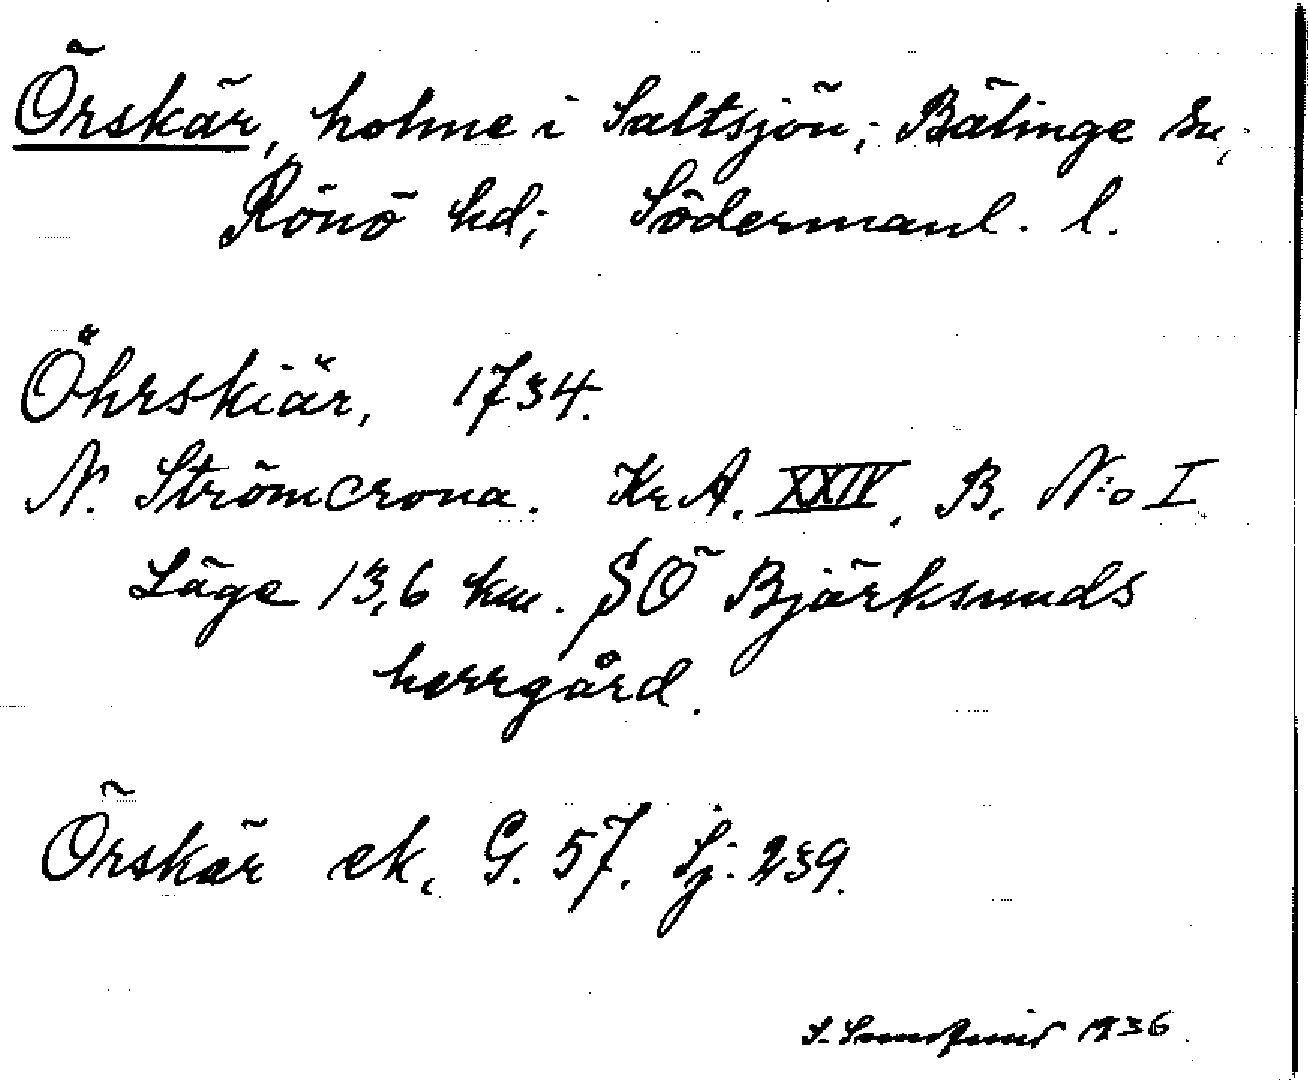 Örskär, holme i Saltsjön, Bälinge sn,
Rönö hd; Södermanl. l.
Öhrskiär, 1734.
N. Strömcrona. Kr. A. XXIV, B, N:o I
Läge 13,6 km. SÖ Björksunds
herrgård.
Örskär ek. G. 57. Sj. 239.
S. 1936